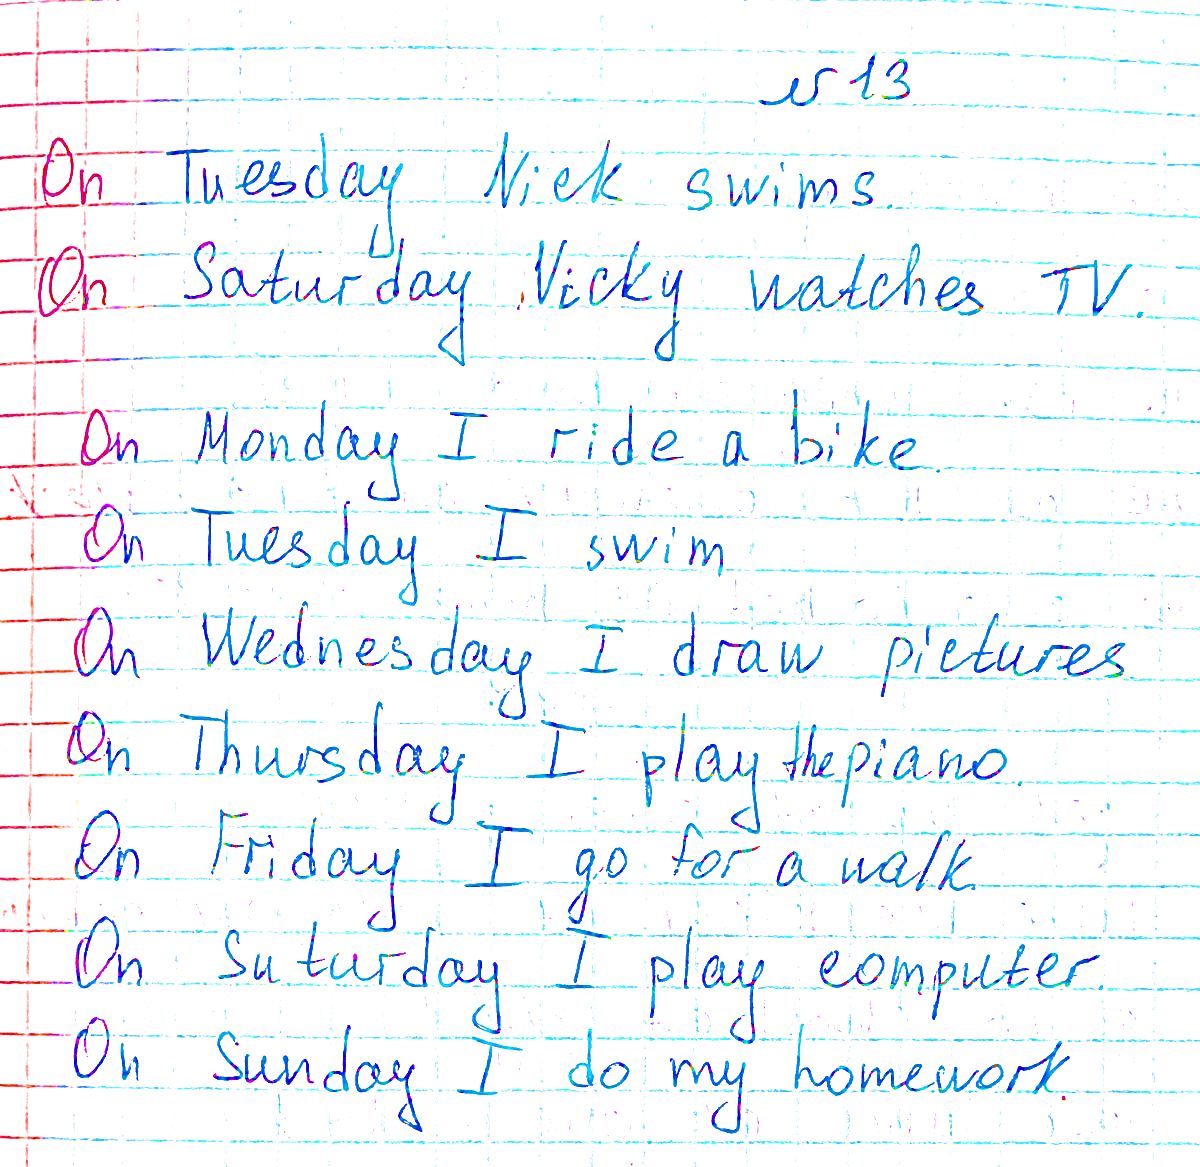 № 13
On Tuesday Nick swims.
On Saturday Vicky watches TV.
On Monday I ride a bike.
On Tuesday I swim
On Wednesday I draw pictures
On Thursday I play the piano.
On Friday I go for a walk.
On Suturday I play computer.
On Sunday I do my homework.